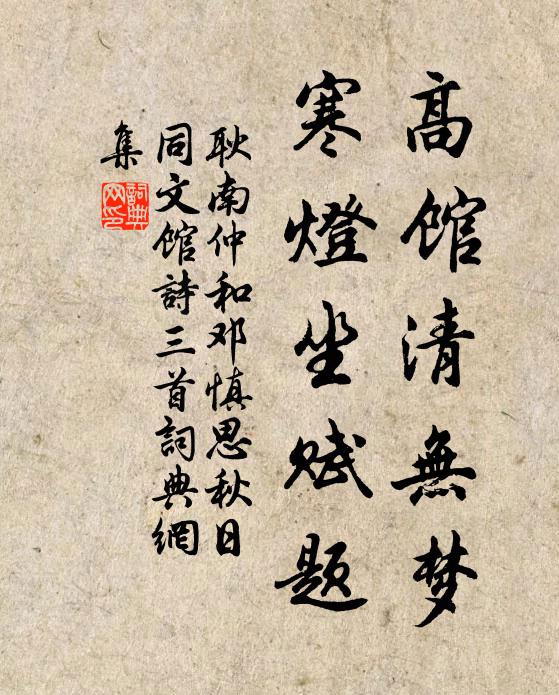 高馆清無梦
寒燈坐赋题
耿南仲和邓慎思秋日
同文馆詩三首詞典網
集
詞典網印